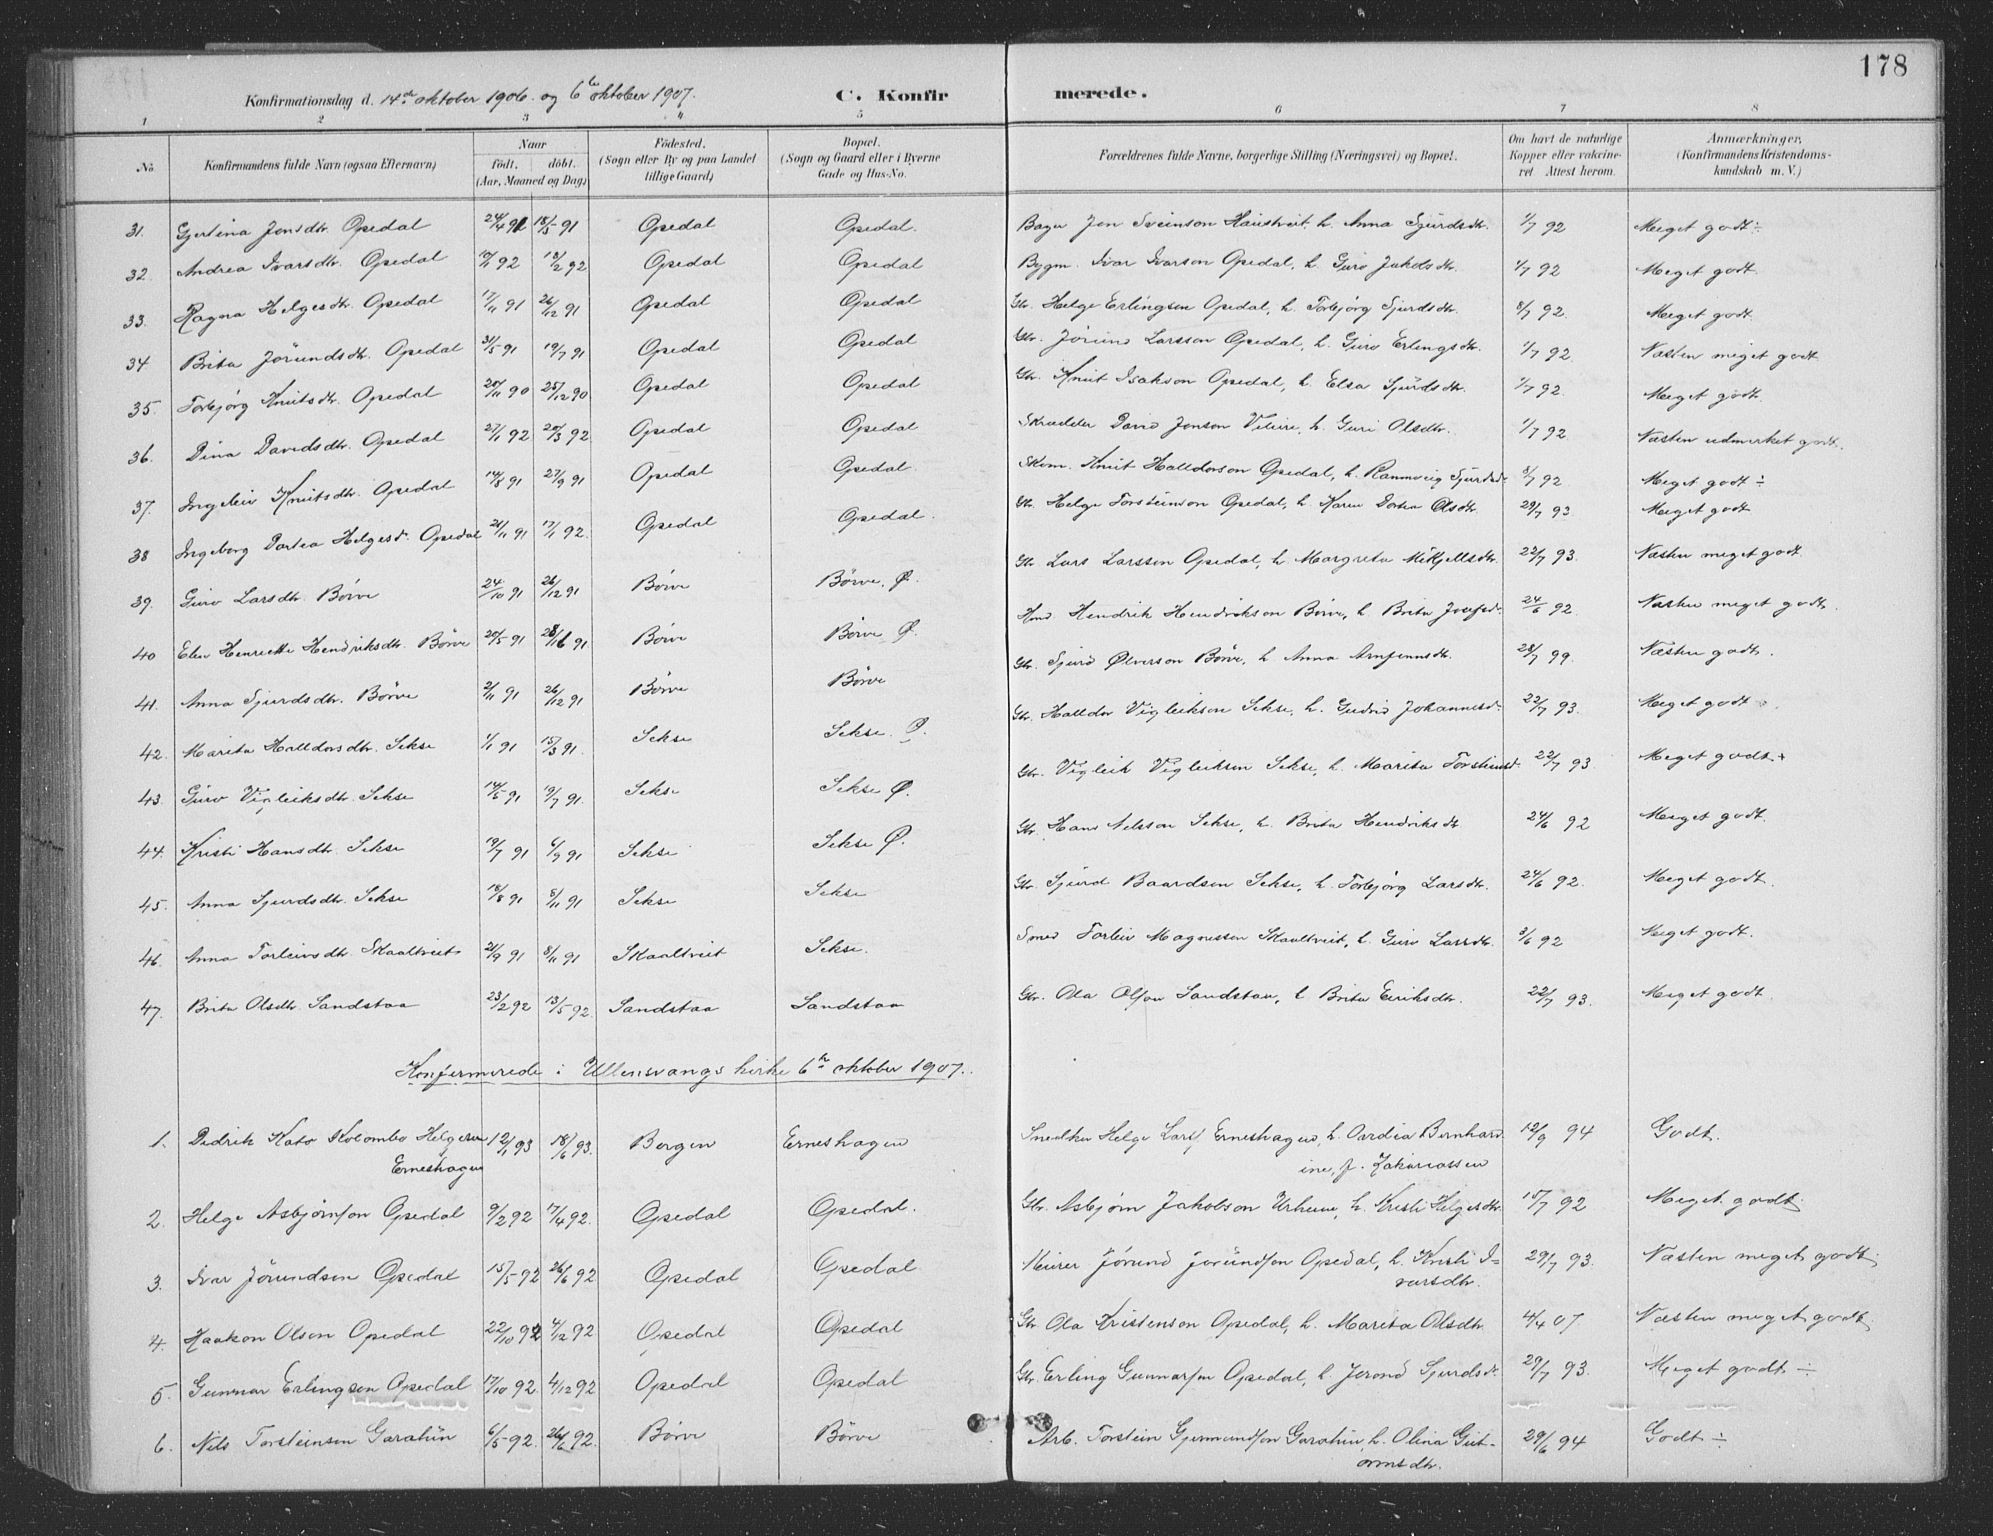 178
Konfirmationsdag d. 14de oktober 1906 og 6te oktober 1907. C. Konfirmerede.
1 2 3 4 5 6 7 8
No Konfirmandens fulde Navn (ogsaa Efternavn) Naar født. døbt. (Aar, Maaned og Dag) Fødested. (Sogn eller By og paa Landet tillige Gaard) Bopæl. (Sogn og Gaard eller i Byerne Gade og Hus-No. Forældrenes fulde Navne, borgerlige Stilling (Næringsvei) og Bopæl. Om havt de naturlige Kopper eller vakcineret Attest herom. Anmærkninger, (Konfirmandens Kristendomskundskab m. V.)
31. Gjertina Jonsdtr. Opedal 24/4 91 18/5 91 Opedal Opedal. Jon Sveinson h. Anna Sjurdsdtr. 1/7 92 Meget godt ÷
32 Andrea Ivarsdtr. Opedal 92 /2 92 Opedal Opedal Bygm. Ivar Ivarson Opedal, h. Guro Jakobsdtr. 1/7 92 Meget godt.
33. Ragna Helgesdtr. Opedal 17/11 91 26/12 91 Opedal Opedal Gbr. Helge Erlingsen Opedal, h. Torbjørg Sjurdsdtr. 8/7 92. Meget godt.
34 Brita Jørundsdtr. Opedal 31/5 91 19/7 91 Opedal Opedal Gbr. Jørund Larsson Opedal, h. Guro Erlingsdtr. 1/7 92 Næsten meget godt
35. Torbjørg Knutsdtr. Opedal 20/11 90 25/12 90 Opedal Opedal Gbr. Knut Isakson Opedal, h. Elsa Sjurdsdtr. 1/7 92. Meget godt.
36. Dina Davidsdtr. Opedal 27/1 92 20/3 92 Opedal Opedal Skrædder David Jonson h. Guri Olsdtr. 1/7 92 Næsten udmerket godt.
37. Ingeleiv Knutsdtr. Opedal 14/8 91 27/9 91 Opedal Opedal. Skom. Knut Halldorson Opedal, h. Rannveig Sjurdsd. 8/7 92 Meget godt ÷
38 Ingeborg Dortea Helgesd. Opedal 21/11 91 17/1 92. Opedal Opedal. Gbr. Helge Torsteinson Opedal, h. Karen Dortea Olsdtr. 29/7 93 Meget godt
39. Guro Larsdtr. Børve 24/10 91 26/12 91 Børve Børve. Ø. Gbr Lars Larsson Opedal, h. Margreta Mikjellsdtr. 22/7 93. Næsten meget godt
40 Elen Henriette Hendriksdtr. Børve 20/5 91 91 Børve Børve Ø. Hmd Hendrik Hendrikson Børve, h Brita Josefsd. 24/6 92 Næsten meget godt.
41. Anna Sjurdsdtr. Børve 2/11 91 26/12 91 Børve Børve Gbr. Sjurd Ølverson Børve, h Anna Arnfinnsdtr. 28/7 99. Næsten godt.
42. Marita Halldorsdtr. Sekse 1/1 91 15/3 91. Sekse Sekse. Gbr. Halldor Vigleikson Sekse, h. Gudrid Johannesd. 22/7 93. Meget godt
43. Guro Vigleiksdtr. Sekse 14/5 91 19/7 91. Sekse Sekse Ø. Gbr. Vigleik Vigleikson Sekse, h. Marita Torsteinsd. 22/7 93. Meget godt +
44. Kristi Hansdtr. Sekse 19/7 91 6/9 91 Sekse Sekse Ø. Gbr. Hans Nelsson Sekse, h. Brita Hendriksdtr 24/6 92 Meget godt.
45. Anna Sjurdsdtr. Sekse 18/8 91 8/11 91 Sekse Sekse Gbr. Sjurd Baardsen Sekse, h. Torbjørg Larsdtr. 24/6 92. Meget godt.
46. Anna Torleivsdtr. Skaaltveit 21/9 91 8/11 91 Skaaltveit Sekse. Smed Torleiv Magnessen Skaaltveit, h. Guro Larsdtr. 3/6 92 Meget godt.
47. Brita Olsdtr. Sandstaa 23/2 92 13/5 92. Sandstaa Sandstaa Gbr. Ola Olson Sandstaa, h Brita Eiriksdtr. 22/7 93. Meget godt.
Konfirmerede i Ullensvangs kirke 6te oktober 1907.
1. Didrik Kato Kolombo Helgesen 12/1 93 18/6 93. Bergen Erneshagen Snedker Helge Lars/ Erneshagen, h. Bernhard 12/9 94 Godt.
Erneshagen ine, f. Zakariassen
2. Helge Asbjørnson Opedal 9/2 92 17/4 92. Opedal Opedal. Gbr. Asbjørn Jakobson Urheim, h. Kristi Helgesdtr. 15/7 92 Meget godt.
3. Ivar Jørundsen Opedal 15/5 92 26/6 92 Opedal Opedal Murer Jørund Jørundson Opedal, h. Kristi I- 29/7 93. Næsten meget godt.
varsdtr.
4. Haakon Olson Opedal 22/10 92 4/12 92 Opedal Opedal Gbr Ola Kristenson Opedal, h. Marita Olsdtr. 4/4 07 Næsten meget godt.
5. Gunnar Erlingsen Opedal 17/10 92. 4/12 92 Opedal Opedal Gbr. Erling Gunnarson Opedal, h. Jorond Sjurdsd. 29/7 93. Meget godt ÷
6. Nils Torsteinsen Garatun 6/5 92. 26/6 92. Børve Børve Arb. Torstein Gjermundson Garatun, h. Olina Gut- 29/6 94 Godt ÷
ormsdtr.